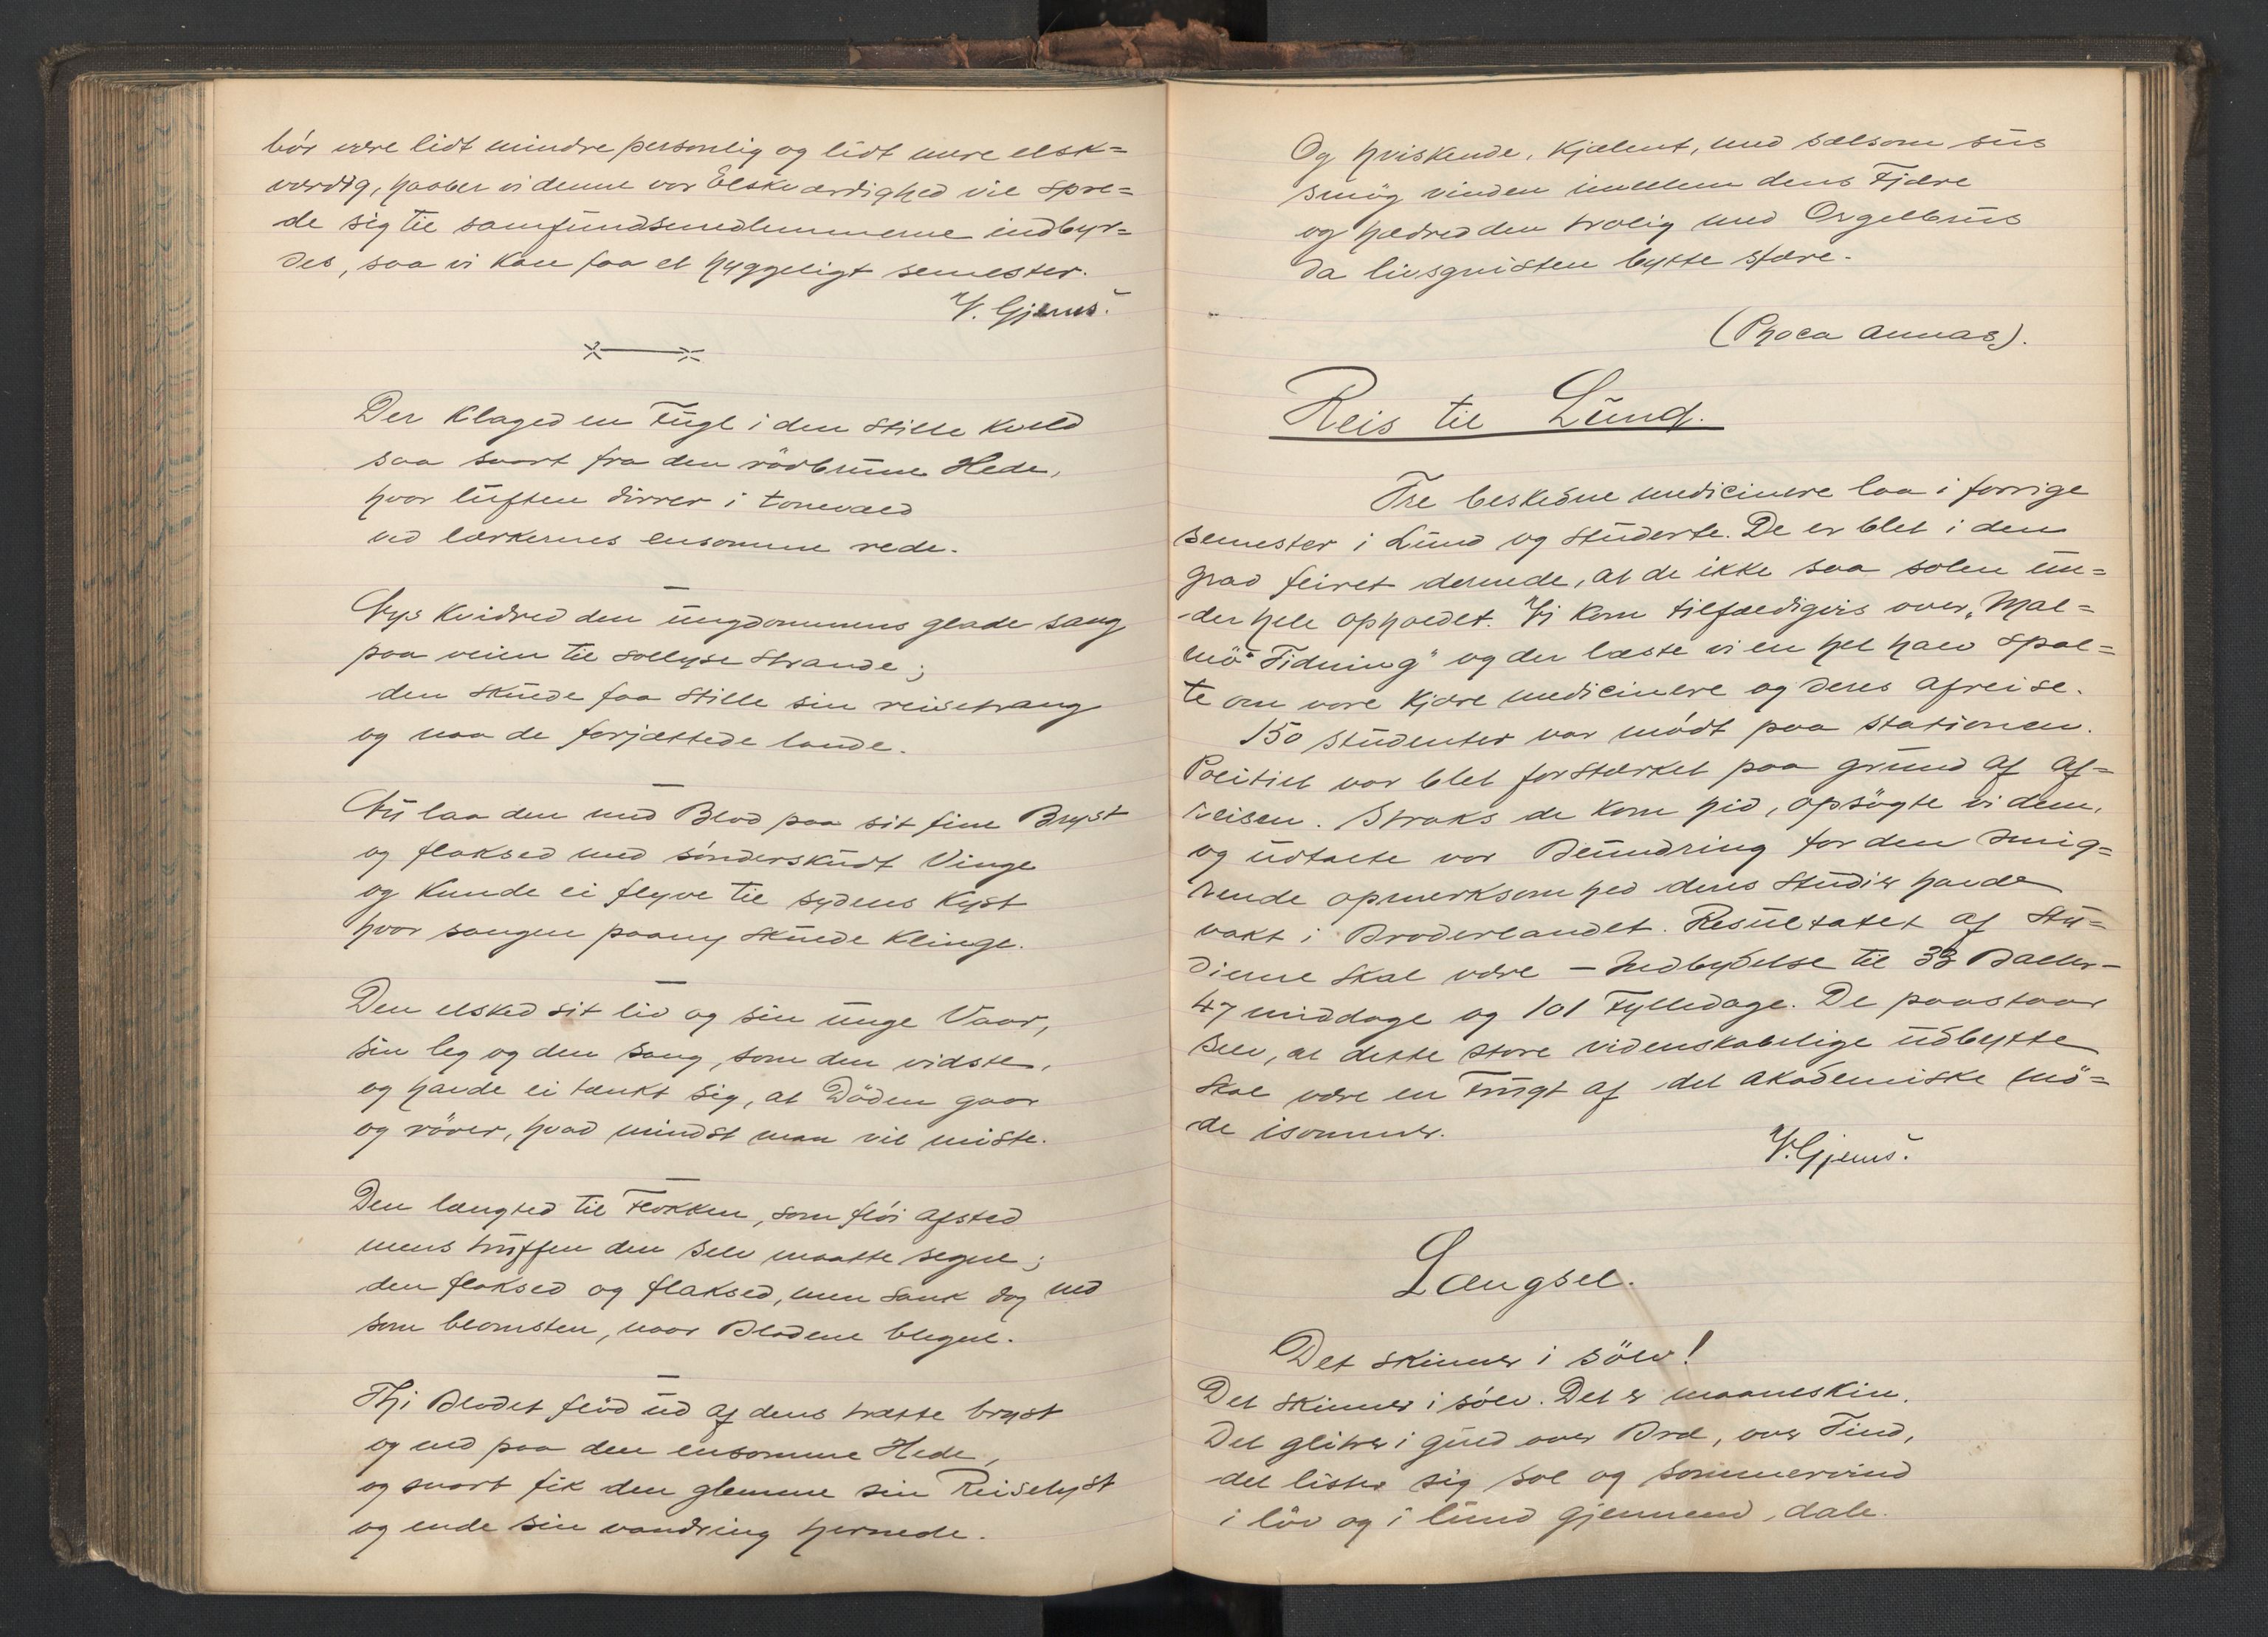 bór være lidt mindre personlig og lidt mere elsk=
værdig, haaber vi denne vor Elskværdighed vil spre=
de sig til samfundsmedlemmerne indbyr=
des, saa vi kan faa et hyggeligt semester.
V. Gjems.
Der klaged en Fugl i den stille kveld
saa saart fra den rödbrune Hede,
hvor luften dirrer i tonevæld
ved lærkernes ensomme rede.
Nys kvidred den ungdommens glade sang
paa veien til sollyse strande;
den skulde faa stille sin reisetrang
og naa de forjættede lande.
Nu laa den med Blod paa sit fine Bryst
og flaksed med sónderskudt Vinge
og kunde ei flyve til sydens kyst
hvor sangen paany skulde klinge.
Den elsked sit liv og sin unge Vaar,
sin leg og den sang, som den vidste,
og havde ei tænkt sig, at Döden gaar
og röver, hvad mindst man vil miste.
Den længted til Flokken, som flói afsted
mens truffen den selv maatte segne;
den flaksed og flaksed, men sank dog ned
som blomsten, naar Bladene blegne.
Thi Blodet flöd ud af dens trætte bryst
og ned paa den ensomme Hede,
og snart fik den glemme sin Reiselyst
og ende sin vandring hernede.
Og hviskende, kjælent, med sælsom sus
smög vinden imellem dens Fjære
og hædred den trolig med Orgelbrus
da livsgnisten bytte sfære.
(Phoca annas).
Reis til Lund.
Tre beskedne medicinere laa i forrige
semester i Lund og studerte. De er blet i den
grad feiret dernede, at de ikke saa solen un=
der hele opholdet. Vi kom tilfældigvis over "Mal=
mö Tidning" og der læste vi en hel halv spal=
te om vore kjære medicinere og deres afreise.
150 studenter var módt paa stationen.
Politiet var blet forstærket paa grund af af=
reisen. Straks de kom hid, opsögte vi dem,
og udtalte vor Beundring for den smig=
rende opmerksomhed deres studier havde
vakt i Broderlandet. Resultatet af Stu=
dierne skal være – Indbydelse til 33 Baller –
47 middage og 101 Fylledage. De paastaar
selv, at dette store videnskabelige udbytte
skal være en Frugt af det akademiske mö=
de isommer.
V. Gjems.
Længsel.
Det skinner i sölv!
Det skinner i sólv. Det er maaneskin.
Det glitrer i guld over Bræ, over Tind,
det lister sig sol og sommervind
i löv og i lund gjennem dale.